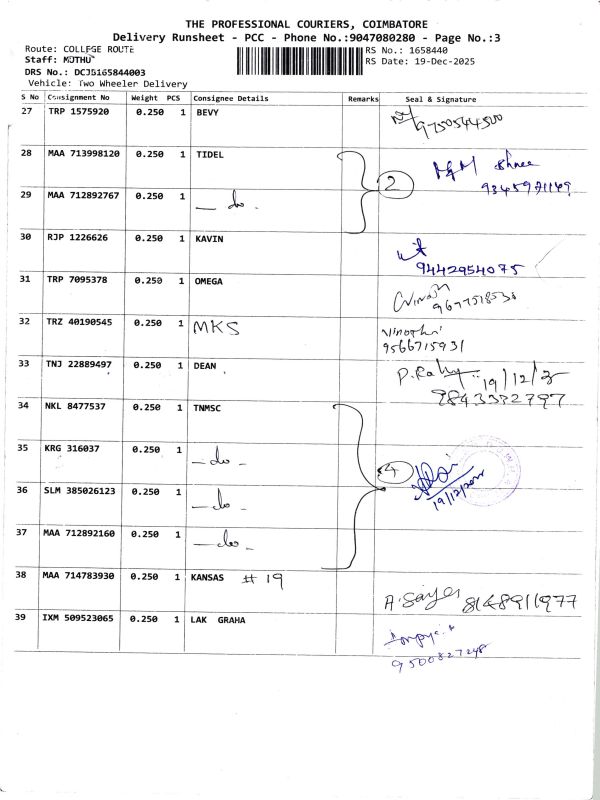 THE PROFESSIONAL COURIERS, COIMBATORE
Delivery Runsheet - PCC - Phone No.:9047080280 - Page No.:3
Route: COLLEGE ROUTE RS No.: 1658440
Staff: MUTHU RS Date: 19-Dec-2025
DRS No.: DCJB165844003
Vehicle: Two Wheeler Delivery
S No Consignment No Weight PCS Consignee Details Remarks Seal & Signature
27 TRP 1575920 0.250 1 BEVY 9750544500
28 MAA 713998120 0.250 1 TIDEL
29 MAA 712892767 0.250 1 — do - 2
30 RJP 1226626 0.250 1 KAVIN 9442954075
31 TRP 7095378 0.250 1 OMEGA
32 TRZ 40190545 0.250 1 MKS
9566715931
33 TNJ 22889497 0.250 1 DEAN 19/12/25
9843332797
34 NKL 8477537 0.250 1 TNMSC
35 KRG 316037 0.250 1 — do - 4
36 SLM 385026123 0.250 1 — do -
37 MAA 712892160 0.250 1 — do -
38 MAA 714783930 0.250 1 KANSAS # 19
8148911977
39 IXM 509523065 0.250 1 LAK GRAHA
9500827248